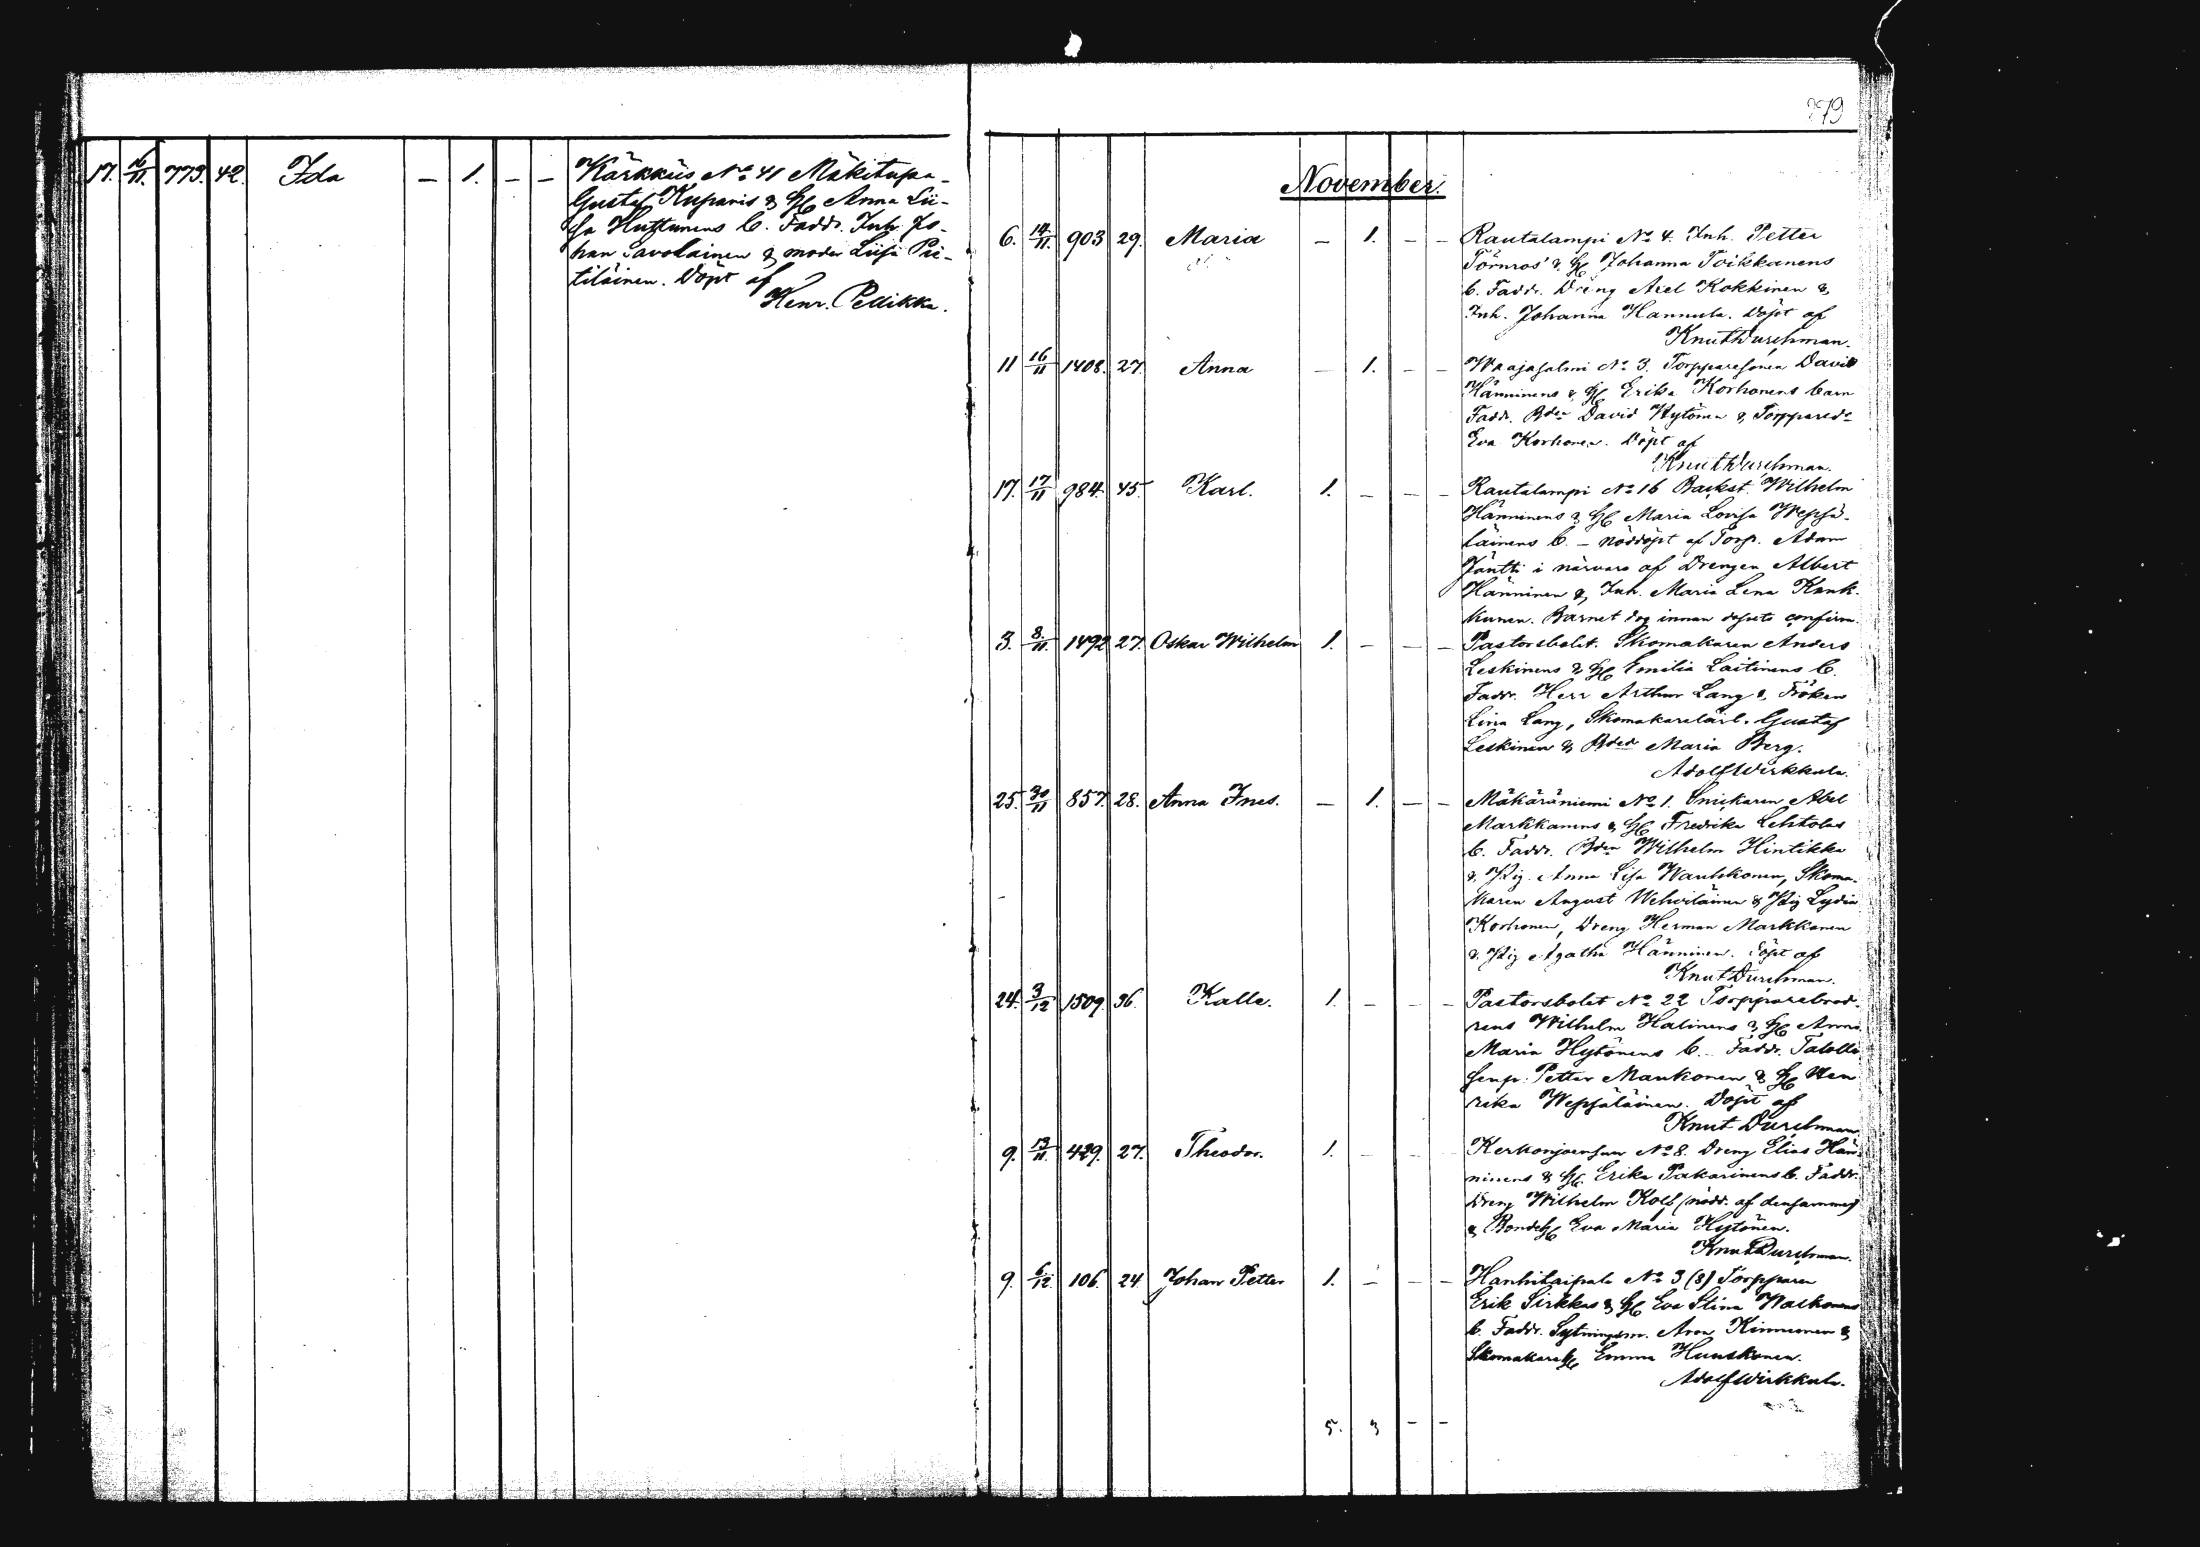 17. 16/11. 773. 42. Ida – 1. – – Kärkkäis No 41 Mäkitupa-
Gustaf Kuparis & H Anna Lii-
sa Huttunens b. Faddr. Inh. Jo-
han Savolainen & moder Liisa Pii-
tiläinen. Döpt af
Henr. Pellikka.
379
November.
6. 14/11 903 29. Maria – 1. – – Rautalampi No 4. Inh. Petter
Törnros' & H Johanna Toikkanens
b. Faddr. Dräng Axel Kokkinen &
Inh. Johanna Hannula. Döpt af
Knut Durchman.
11 16/11 1408. 27. Anna – 1. – – Waajasalmi No 3. Torpparesonen David
Hänninens & H Erika Korhonens barn
Faddr. Bden David Hytönen & Torppared.
Eva Korhonen. Döpt af
Knut Durchman.
17. 17/11 984. 45. Karl. 1. – – – Rautalampi No 16 Backst. Wilhelm
Hänninens & H Maria Lovisa Wepsä-
läinens b. – nöddöpt af Torp. Adam
Jäntti i närvaro af Drengen Albert
Hänninen & Inh. Maria Lena Kank-
kunen. Barnet dog innan dopets confirm.
3. 8./11. 1492 27. Oskar Wilhelm 1. – – – Pastorsbolet. Skomakaren Anders
Leskinens & H Emilia Laitinens b.
Faddr. Herr Arthur Lang &, Fröken
Lina Lang, Skomakarelärl. Gustaf
Leskinen & Bded Maria Berg.
Adolf Wirkkula.
25. 30/11 857. 28. Anna Ines. – 1. – – Mäkäräniemi No 1. Snickaren Abel
Markkanens & H Fredrika Lehtolas
b. Faddr. Bden Wilhelm Hintikka
& Pig. Anna Lisa Wauhkonen, Skoma-
karen August Wehviläinen & Pig Lydia
Korhonen, Dreng Herman Markkanen
& Pig Agatha Hänninen. Döpt af
Knut Durchman.
24. 3/12 1509. 36. Kalle. 1. – – – Pastorsbolet No 22 Torpparebrod-
rens Wilhelm Halinens & H Anna
Maria Hytönens b. Faddr. Talolli-
senp. Petter Maukonen & H Hen
rika Wepsäläinen. Döpt af
Knut Durchman
9. 13/11. 429. 27. Theodor. 1. – – – Kerkonjoensuu No 8. Dreng Elias Hän-
ninens & H. Erika Pakarinens b. Faddr.
Dreng Wilhelm Kolf (nödd. af densamme)
& Bondeh Eva Maria Hytönen.
Knut Durchman.
9. 6./12. 106. 24 Johan Petter 1. – – – Hanhitaipale No 3 (8) Torpparen
Erik Sirkkas & H Eva Stina Walkonens
b. Faddr. Sytningsm. Aron Kinnunen &
Skomakareh Emma Huuskonen.
Adolf Wirkkula.
5. 3 – –